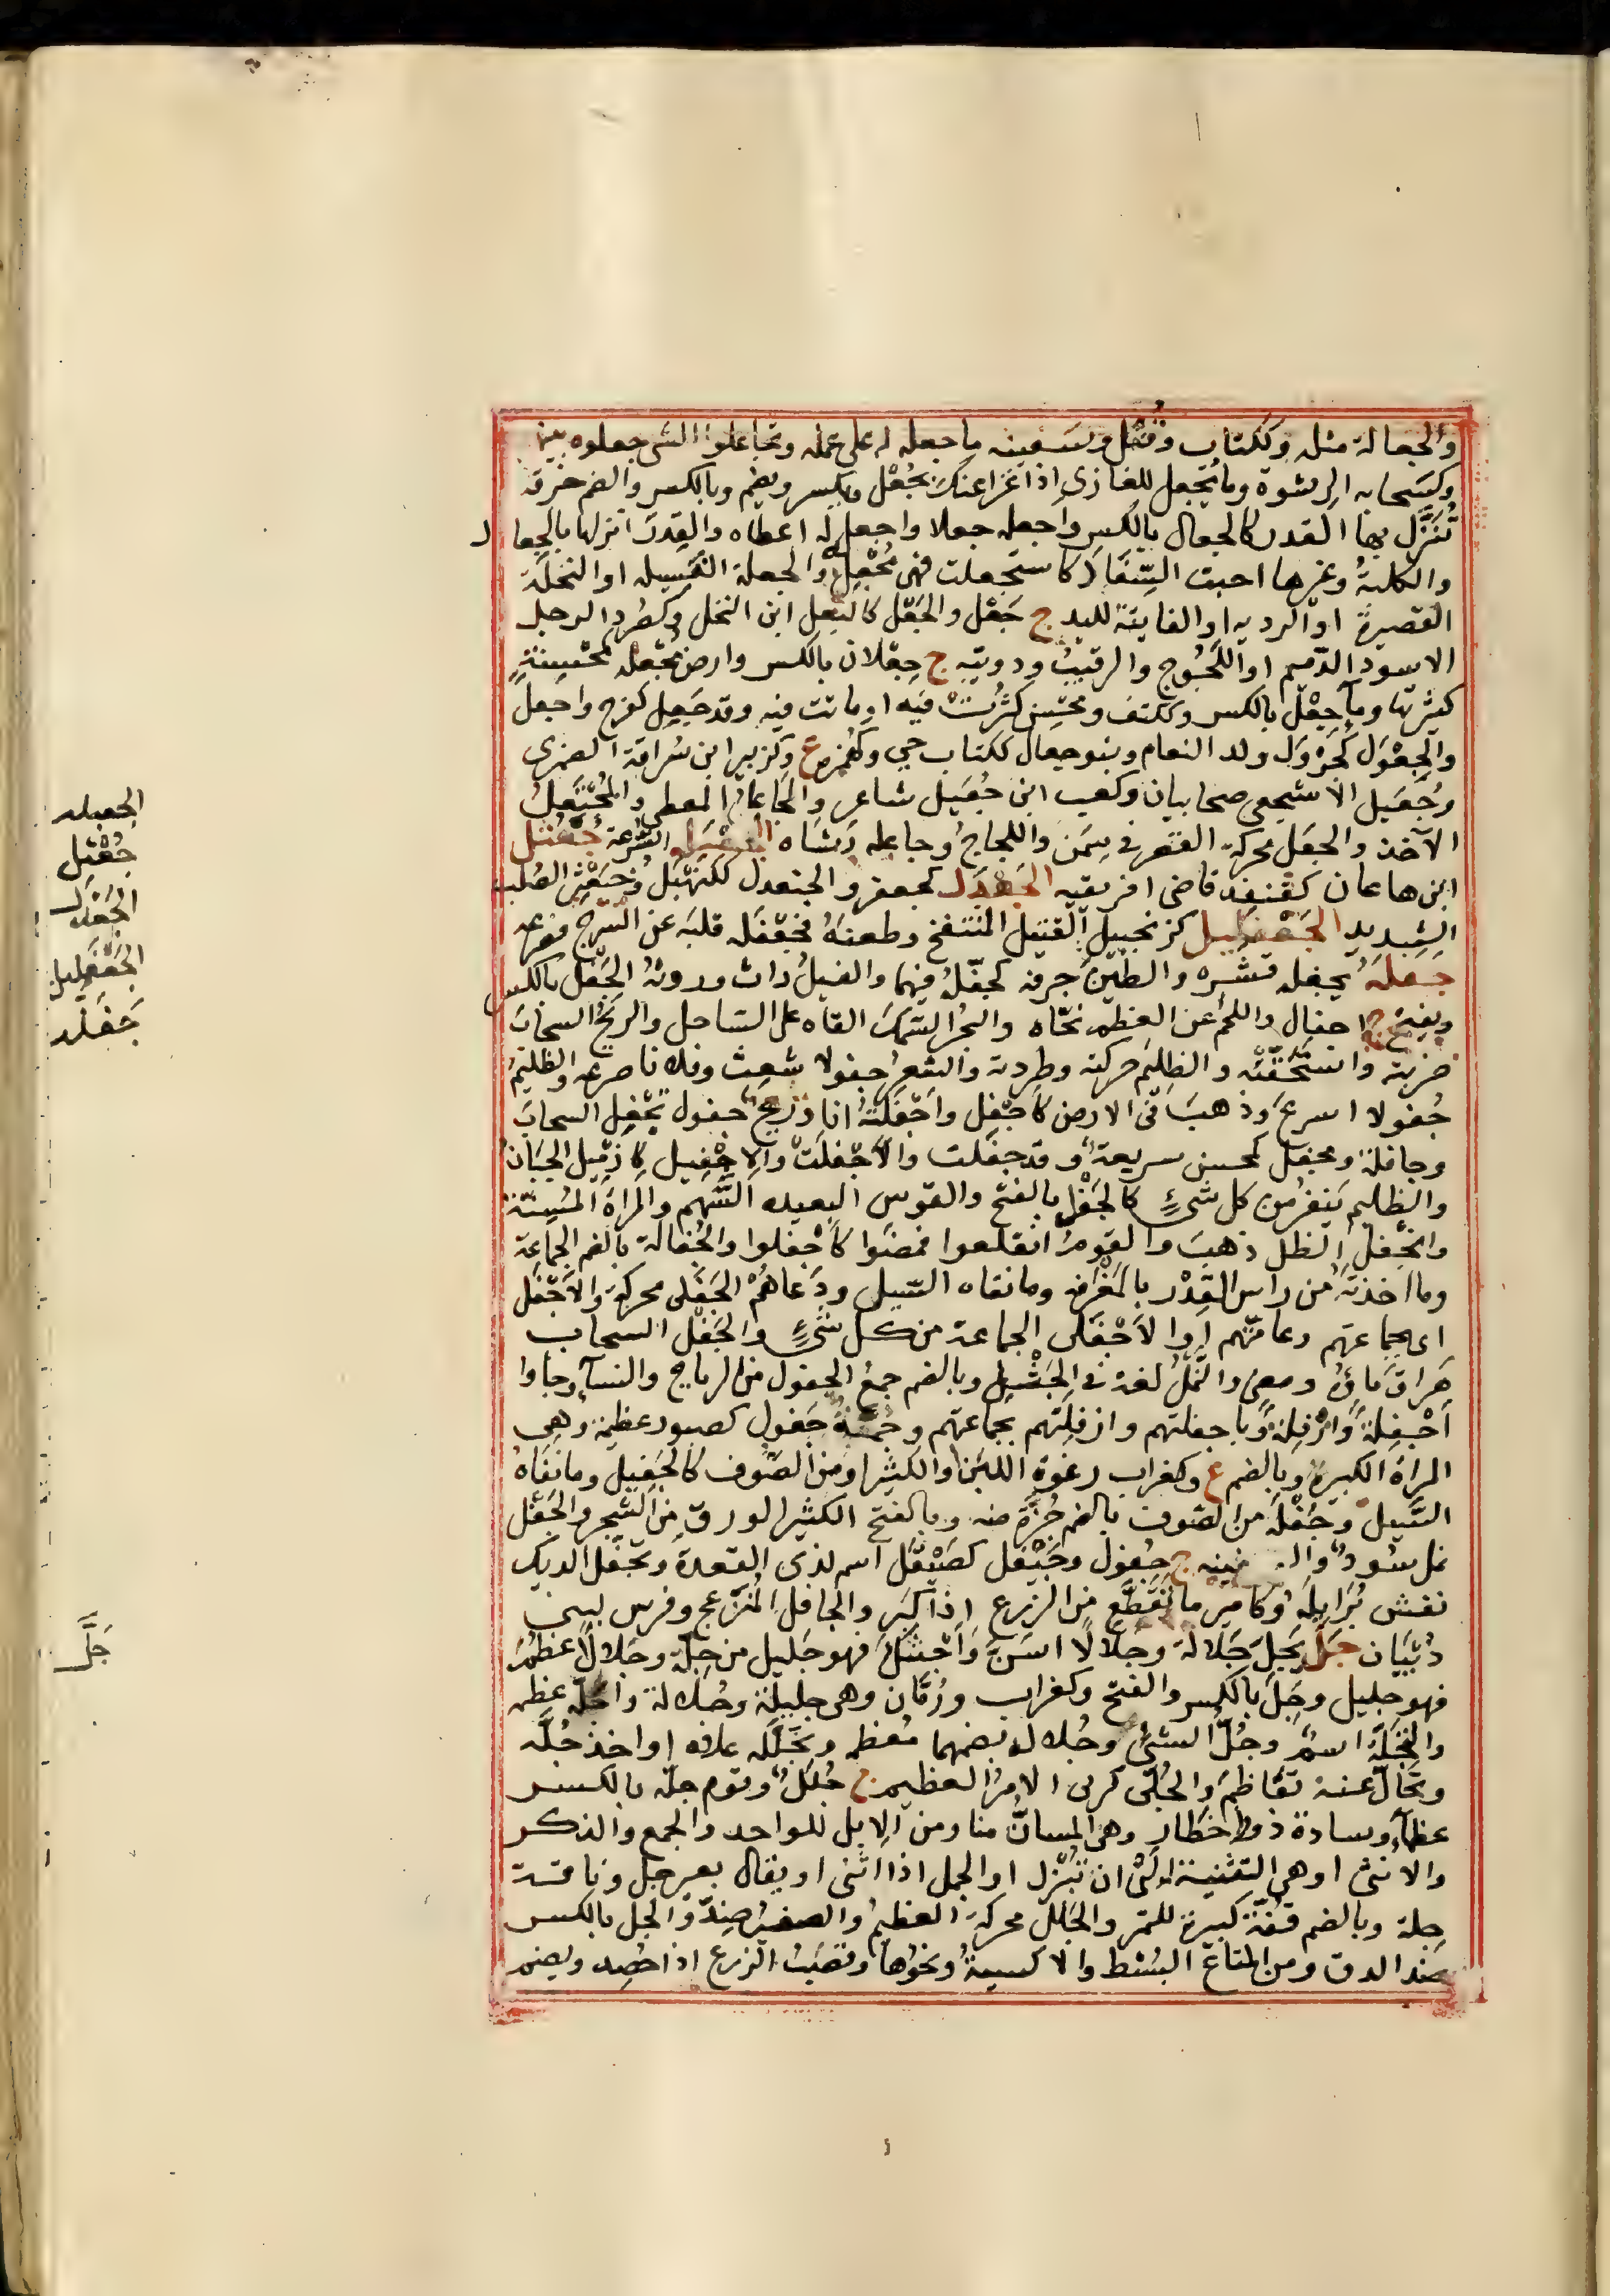 والجعالة مثله وككتاب وقفل وسفينه ما جعله له على عمله وتجاعلوا الشي جعلوه بينهم
وكسحابه الرشوة وما تجعل للغازى اذا غزا عنك بجعل ويكسر ويضم وبالكسر والضم خرقة
تنزل بها القدر كالجعال بالكسر واجعله جعلا واجعل له اعطاه والقدر انزلها بالجعال
والكلبة وغيرها احبت السفاد كاستجعلت فهى مجعل والجعلة الفسيله او النخلة
القصيرة او الرديه او الفايتة لليد ج جعل والجعل كالبعل ابن النخل وكصرد الرجل
الاسود الدميم او اللجوج والرقيب ودويبه ج جعلان بالكسر وارض مجعله كمحسنة
كثيرتها وماء جعل بالكسر وككتف ومحسن كثرت فيه او ماتت فيه وقد جعل كفرح واجعل
والجعول كجرول ولد النعام وبنو جعال ككتاب حي وكهمزه ع وكزبير ابن سراقة الضمرى
وجعيل الاشجعى صحابيان وكعب ابن جعيل شاعر والجاعل المعطى والمجتعل
الآخذ والجعل محركة القصر فى سمن واللجاج وجاعله رشاه الجعبله السرعة جعثل
ابن هاعان كقنفد قاضى افريقيه الجعدل كجعفر والجنعدل ككنهبل وخبعثن الصلب
الشديد الجعفليل كزنجبيل القتيل المنتفخ وطعنه فجعفله قلبه عن السرج فصرعه
جفله يجفله قشره والطين جرفه كجفله فيهما والفيل راث وروثه الجفل بالكسر
ويفتح ج اجفال واللحم عن العظم نحاه والبحر السمك القاه على الساحل والريح السحاب
ضربته واستخفته والظليم حركته وطردته والشعر جفولا شعث وفلانا صرعه والظليم
جفولا اسرع وذهب فى الارض كاجفل واجفلته انا وريح جفول تجفل السحاب
وجافلة ومجفل كمحسن سريعة وقد جفلت واجفلت والاجفيل كازميل الجبان
والظليم ينفر من كل شيء كالجفل بالفتح والقوس البعيده السهم والمراة المسنة
وانجفل الظل ذهب والقوم انقلعوا فمضوا كاجفلوا والجفالة بالضم الجماعة
وما اخذته من راس القدر بالمغرفة وما نفاه السيل ودعاهم الجفلى محركة والاجفلى
اى بجماعتهم وعامتهم او الاجفلى الجماعة من كل شيء والجفل السحاب
هراق ماؤه ومضى والنمل لغة فى الجثل وبالضم جمع الجفول من الرياح والنسآء وجاوا
اجفلة وازفلة وباجفلتهم وازفلتهم بجماعتهم وجمة جفول كصبور عظيمة وهى
المراة الكبيرة وبالضم ع وكغراب رغوة اللبن والكثير او من الصوف كالجفيل وما نفاه
السيل وجفلة من الصوف بالضم جزة منه وبالفتح الكثير الورق من الشجر والجفل
نمل سود والسفينه ج جفول وجيفل كصيقل اسم لذى القعدة وتجفل الديك
نفش برايله وكامير ما تقطع من الزرع اذا كبر والجافل المنزعج وفرس لبنى
ذبيان جل يجل جلالة وجلالا اسن واحتنك فهو جليل من جلة وجلالا عظم
فهو جليل وجل بالكسر والفتح وكغراب ورمان وهى جليلة وجلالة واجله عظمه
والتجلة اسم وجل الشئ وجلاله بضمهما معظمه وتجلله علاه او اخذ جله
وتجال عنه تعاظم والجلى كربى الامر العظيم ج جلل وقوم جلة بالكسر
عظمآء وسادة ذوو اخطار وهى المسان منا ومن الابل للواحد والجمع والذكر
والانثى او هى الثنية الى ان تبزل او الجمل اذا اثنى او يقال بعير جل وناقة
جلة وبالضم قفة كبيرة للتمر والجلل محركة العظيم والصغير ضد والجل بالكسر
ضد الدق ومن المتاع البسط والاكسية ونحوها وقصب الزرع اذا حصد ويضم
الجعبله
جعثل
الجعدل
الجعفليل
جفله
جل